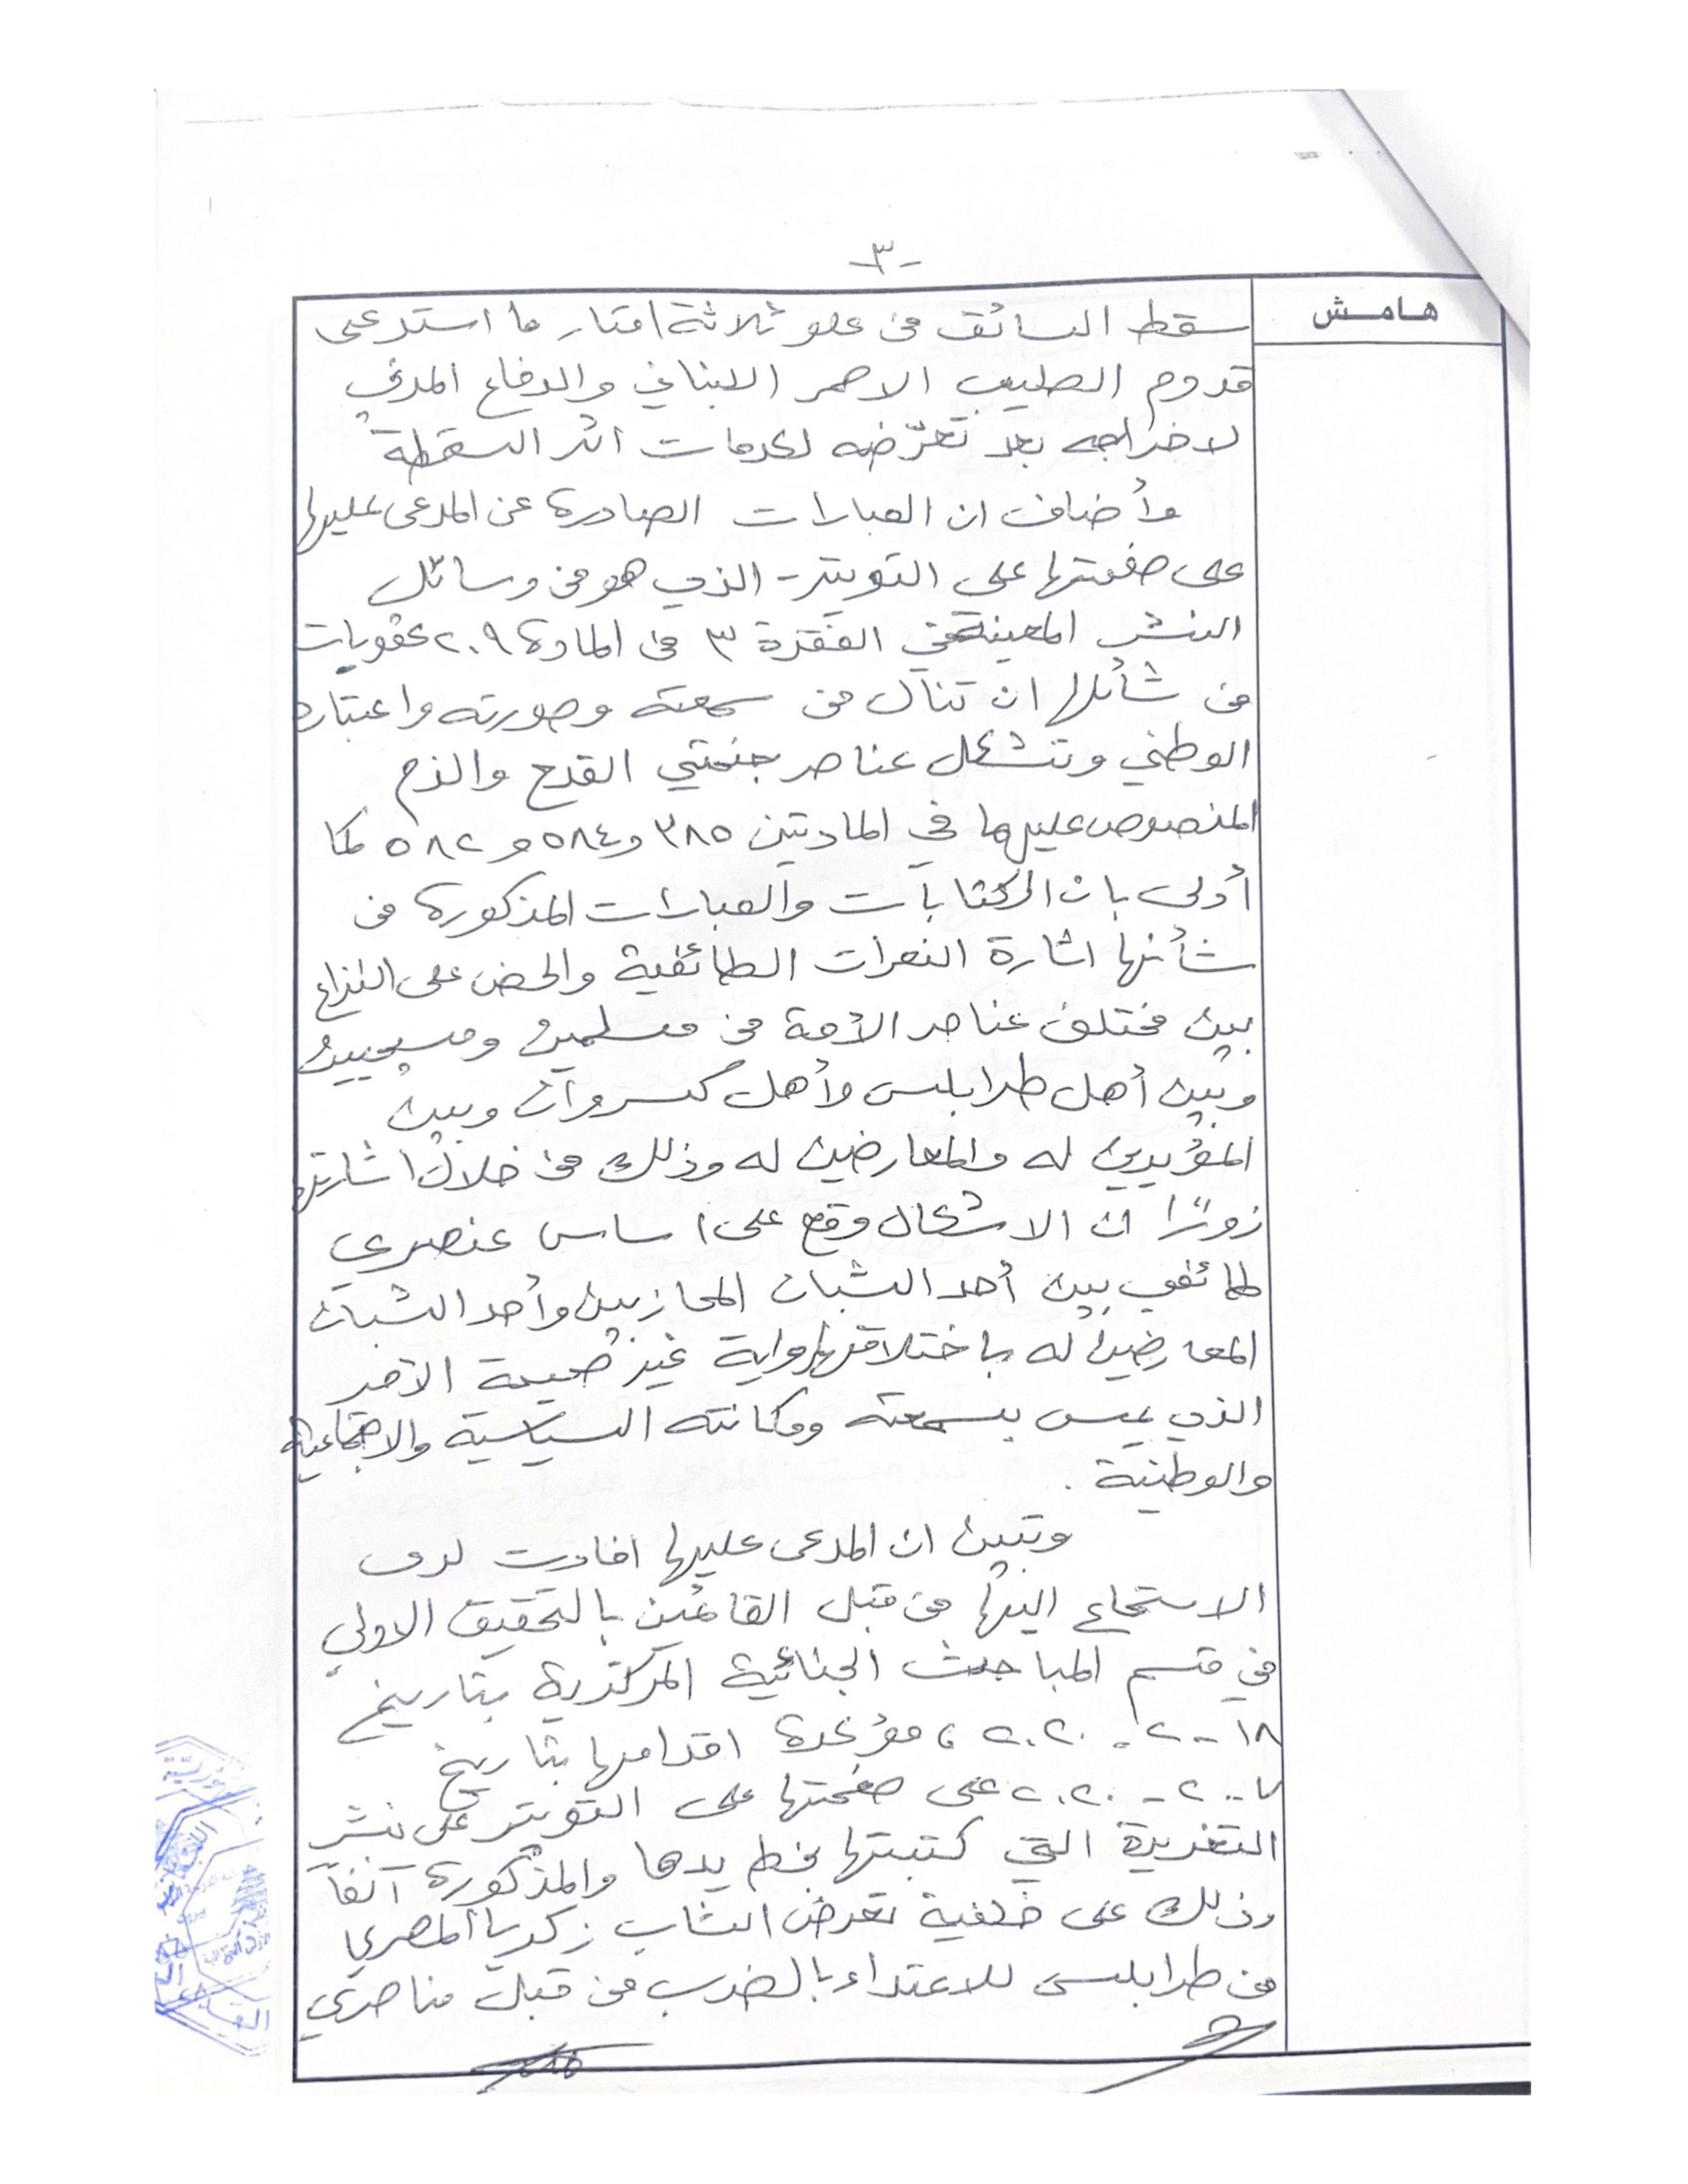 -٣-
هامش
سقط السائق من علو ثلاثة امتار ما استدعى
قدوم الصليب الاحمر اللبناني والدفاع المدني
لاخراجه بعد تعرّضه لكدمات اثر السقطة
وأضاف ان العبارات الصادرة عن المدعى عليها
على صفحتها على التويتر - الذي هو من وسائل
النشر المعينة في الفقرة ٣ من المادة ٢٠٩ عقوبات
من شأنها ان تنال من سمعته وصورته واعتباره
الوطني وتشكل عناصر جنحتي القدح والذم
المنصوص عليهما في المادتين ٣٨٥ و٥٨٤ و ٥٨٢ كما
أدلى بان الكتابات والعبارات المذكورة من
شأنها اثارة النعرات الطائفية والحض على النزاع
بين مختلف عناصر الأمة من مسلمين ومسيحيين
وبين أهل طرابلس وأهل كسروان وبين
المؤيدين له والمعارضين له وذلك من خلال اشارتها
زورًا ان الاشكال وقع على اساس عنصري
طائفي بين أحد الشبان المحازبين وأحد الشبان
المعارضين له باختلاقها رواية غير صحيحة الأمر
الذي يمس بسمعته ومكانته السياسية والاجتماعية
والوطنية .
وتبين ان المدعى عليها افادت لدى
الاستماع اليها من قبل القائمين بالتحقيق الاولي
في قسم المباحث الجنائية المركزية بتاريخ
١٨-٢-٢٠٢٠، مؤكدة اقدامها بتاريخ
٧-٢-٢٠٢٠ على صفحتها على التويتر على نشر
التغريدة التي كتبتها بخط يدها والمذكورة آنفاً
وذلك على خلفية تعرض الشاب زكريا المصري
من طرابلس للاعتداء بالضرب من قبل مناصري